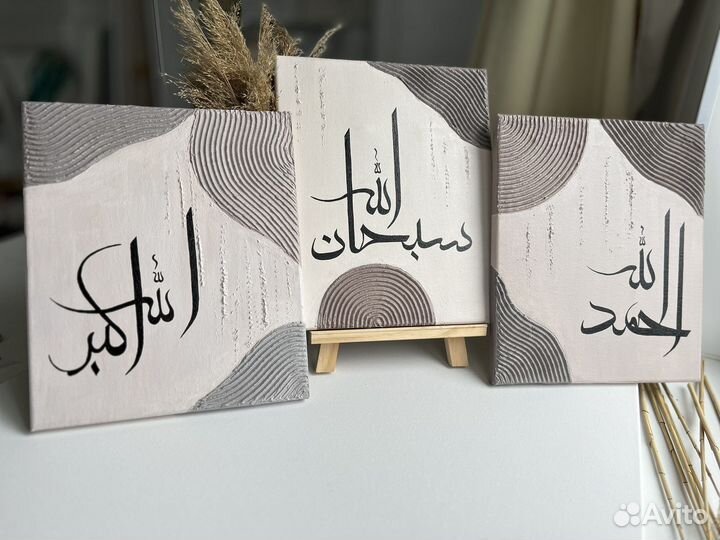 الحمد لله
سبحان الله
الله اكبر
Avito